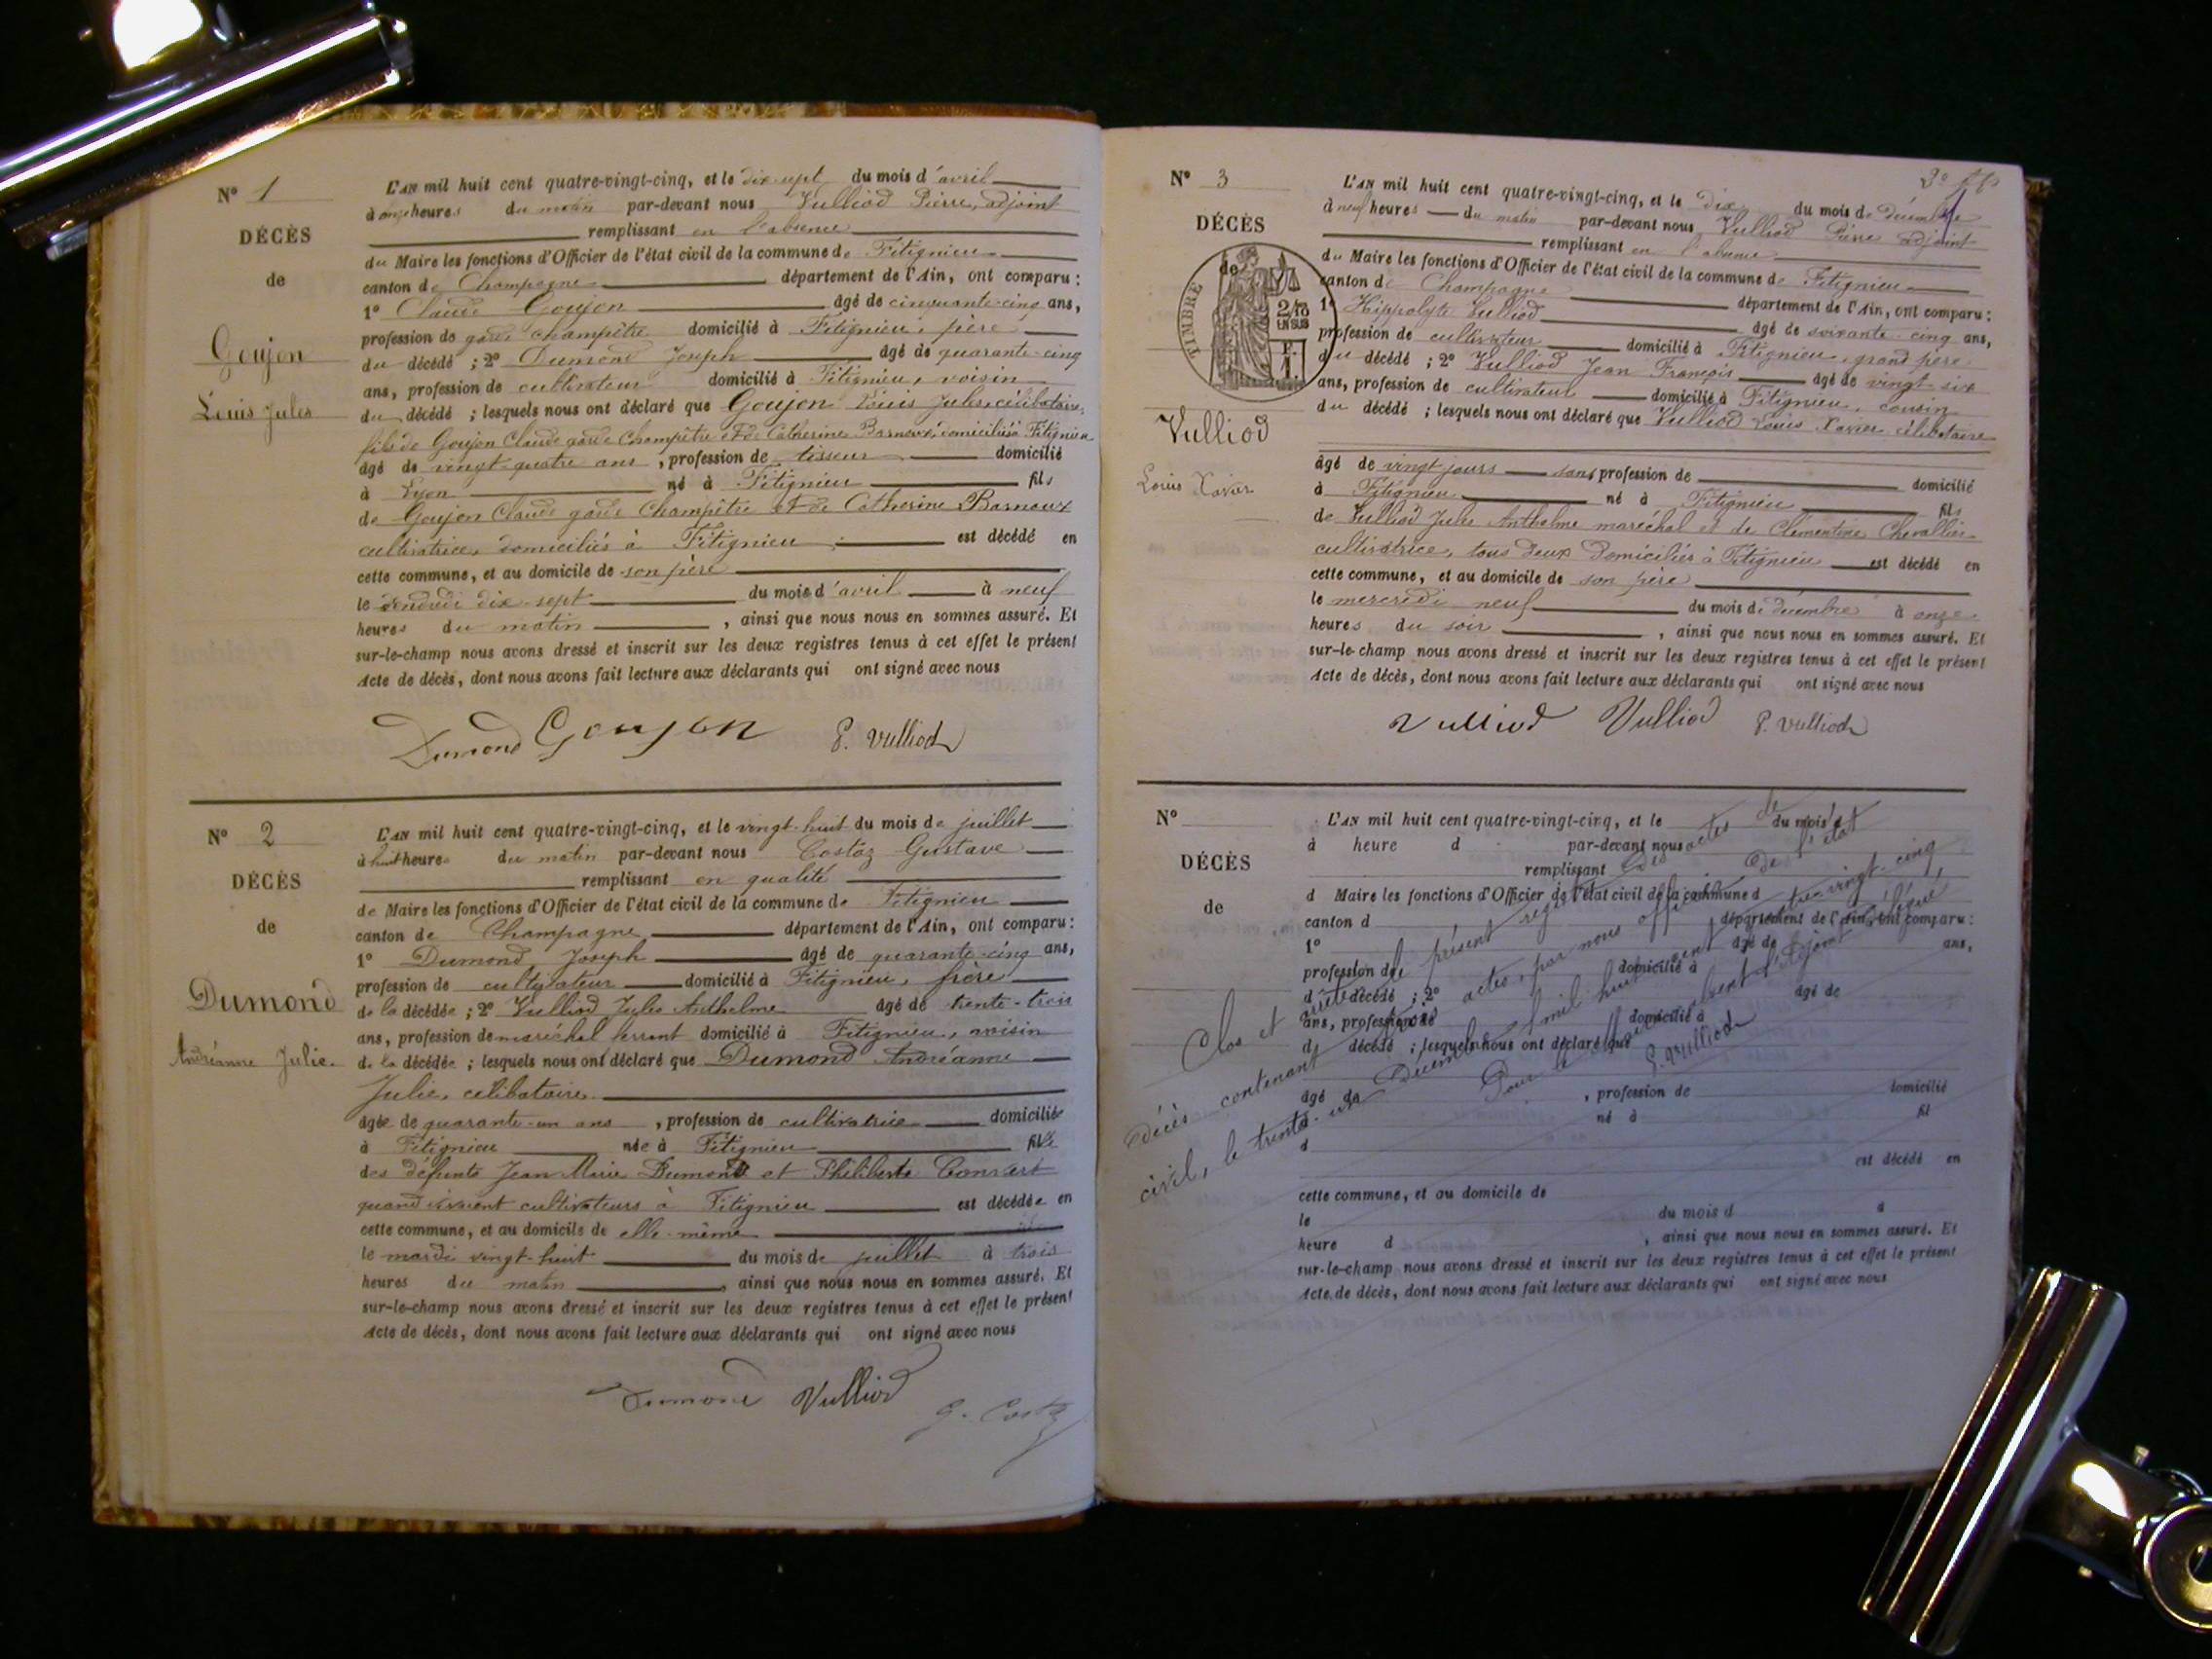 N° 1
DÉCÈS
de
Goujon
Louis Jules
L'AN mil huit cent quatre-vingt-cinq, et le dix-sept du mois d'avril
à onze heures du matin par-devant nous Vulliod Pierre, adjoint
remplissant en l'absence
du Maire les fonctions d'Officier de l'état civil de la commune de Fitignieu
canton de Champagne département de l'Ain, ont comparu :
1° Claude Goujon âgé de cinquante-cinq ans,
profession de garde champêtre domicilié à Fitignieu, père
du décédé ; 2° Dumond Joseph âgé de quarante-cinq
ans, profession de cultivateur domicilié à Fitignieu, voisin
du décédé ; lesquels nous ont déclaré que Goujon Louis Jules, célibataire,
fils de Goujon Claude garde champêtre et de Catherine Barnoux, domiciliés à Fitignieu
âgé de vingt-quatre ans, profession de tisseur domicilié
à Lyon né à Fitignieu fils
de Goujon Claude garde champêtre et de Catherine Barnoux
cultivatrice, domiciliés à Fitignieu est décédé en
cette commune, et au domicile de son père
le vendredi dix-sept du mois d'avril à neuf
heures du matin, ainsi que nous nous en sommes assuré. Et
sur-le-champ nous avons dressé et inscrit sur les deux registres tenus à cet effet le présent
Acte de décès, dont nous avons fait lecture aux déclarants qui ont signé avec nous
Dumond Goujon P. Vulliod
N° 2
DÉCÈS
de
Dumond
Andréanne Julie.
L'AN mil huit cent quatre-vingt-cinq, et le vingt-huit du mois de juillet
à huit heures du matin par-devant nous Costaz Gustave
remplissant en qualité
de Maire les fonctions d'Officier de l'état civil de la commune de Fitignieu
canton de Champagne département de l'Ain, ont comparu :
1° Dumond Joseph âgé de quarante-cinq ans,
profession de cultivateur domicilié à Fitignieu, frère
de la décédée ; 2° Vulliod Jules Anthelme âgé de trente-trois
ans, profession de maréchal ferrant domicilié à Fitignieu, voisin
de la décédée ; lesquels nous ont déclaré que Dumond Andréanne
Julie, célibataire
âgée de quarante-un ans, profession de cultivatrice domiciliée
à Fitignieu née à Fitignieu fille
des défunts Jean Marie Dumond et Philiberte
quand vivaient cultivateurs à Fitignieu est décédée en
cette commune, et au domicile de elle-même
le mardi vingt-huit du mois de juillet à trois
heures du matin, ainsi que nous nous en sommes assuré. Et
sur-le-champ nous avons dressé et inscrit sur les deux registres tenus à cet effet le présent
Acte de décès, dont nous avons fait lecture aux déclarants qui ont signé avec nous
Dumond Vulliod G. Costaz
N° 3
DÉCÈS
de
TIMBRE
2/10
EN SUS
F.
1.
Vulliod
Louis Xavier
L'AN mil huit cent quatre-vingt-cinq, et le dix du mois de décembre
à neuf heures du matin par-devant nous Vulliod Pierre adjoint
remplissant en l'absence
du Maire les fonctions d'Officier de l'état civil de la commune de Fitignieu
canton de Champagne département de l'Ain, ont comparu :
1° Hippolyte Vulliod âgé de soixante-cinq ans,
profession de cultivateur domicilié à Fitignieu, grand père
du décédé ; 2° Vulliod Jean François âgé de vingt-six
ans, profession de cultivateur domicilié à Fitignieu, cousin
du décédé ; lesquels nous ont déclaré que Vulliod Louis Xavier célibataire
âgé de vingt jours sans profession de domicilié
à Fitignieu né à Fitignieu fils
de Vulliod Jules Anthelme maréchal et de Clémentine Chevallier
cultivatrice, tous deux domiciliés à Fitignieu est décédé en
cette commune, et au domicile de son père
le mercredi neuf du mois de décembre à onze
heures du soir, ainsi que nous nous en sommes assuré. Et
sur-le-champ nous avons dressé et inscrit sur les deux registres tenus à cet effet le présent
Acte de décès, dont nous avons fait lecture aux déclarants qui ont signé avec nous
Vulliod Vulliod P. Vulliod
N°
DÉCÈS
de
L'AN mil huit cent quatre-vingt-cinq, et le du mois d
à heure d par-devant nous
remplissant
d Maire les fonctions d'Officier de l'état civil de la commune d
canton d département de l'Ain, ont comparu :
1° âgé de ans,
profession de domicilié à
d décédé ; 2° âgé de
ans, profession de domicilié à
d décédé ; lesquels nous ont déclaré que
âgé de, profession de domicilié
à né à fil
d
est décédé en
cette commune, et au domicile de
le du mois d à
heure d, ainsi que nous nous en sommes assuré. Et
sur-le-champ nous avons dressé et inscrit sur les deux registres tenus à cet effet le présent
Acte de décès, dont nous avons fait lecture aux déclarants qui ont signé avec nous
Clos et arrêté le présent registre des actes de
décès contenant trois actes, par nous officier de l'état
civil, le trente-un Décembre mil huit cent quatre-vingt-cinq,
Pour le Maire absent l'adjoint délégué,
P. Vulliod